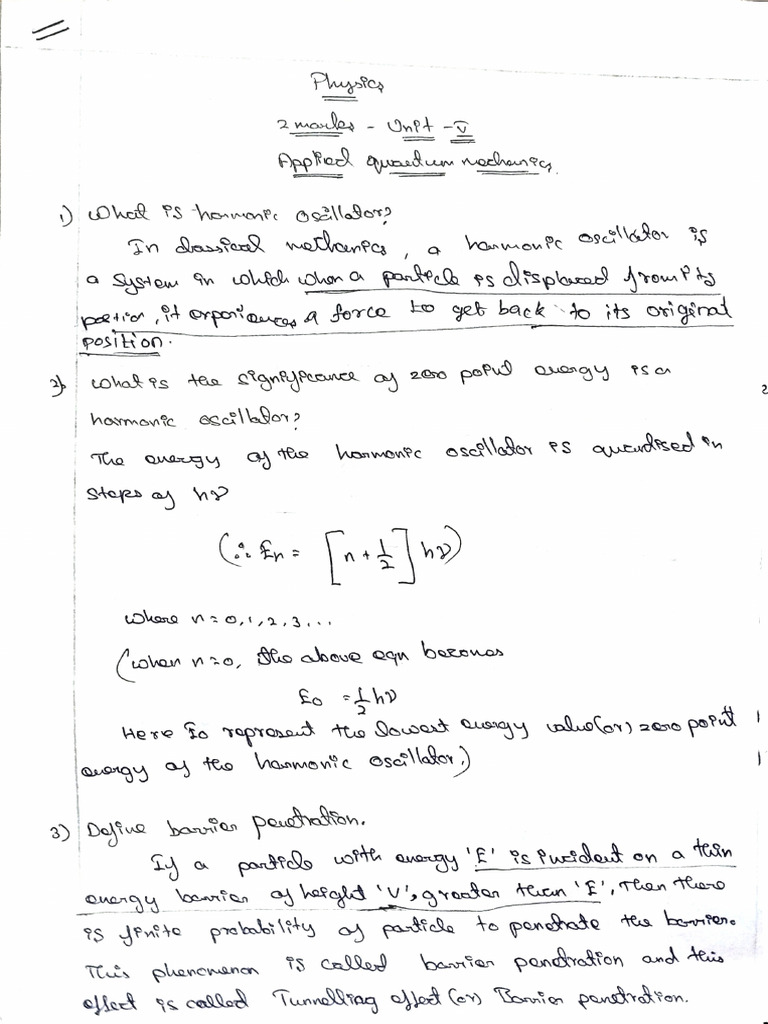 Physics
2 marks - Unit - V
Applied quantum mechanics.
1) What is harmonic oscillator?
In classical mechanics, a harmonic oscillator is
a system in which when a particle is displaced from its
position, it experiences a force to get back to its original
position.
2) What is the significance of zero point energy is a
harmonic oscillator?
The energy of the harmonic oscillator is quantised in
steps of hν
(∴ En = [n + 1/2] hν)
where n = 0, 1, 2, 3...
(when n = 0, the above eqn becomes
E0 = 1/2 hν
Here E0 represent the lowest energy value (or) zero point
energy of the harmonic oscillator.)
3) Define barrier penetration.
If a particle with energy 'E' is incident on a thin
energy barrier of height 'V', greater than 'E', then there
is finite probability of particle to penetrate the barrier.
This phenomenon is called barrier penetration and this
effect is called Tunnelling effect (or) Barrier penetration.